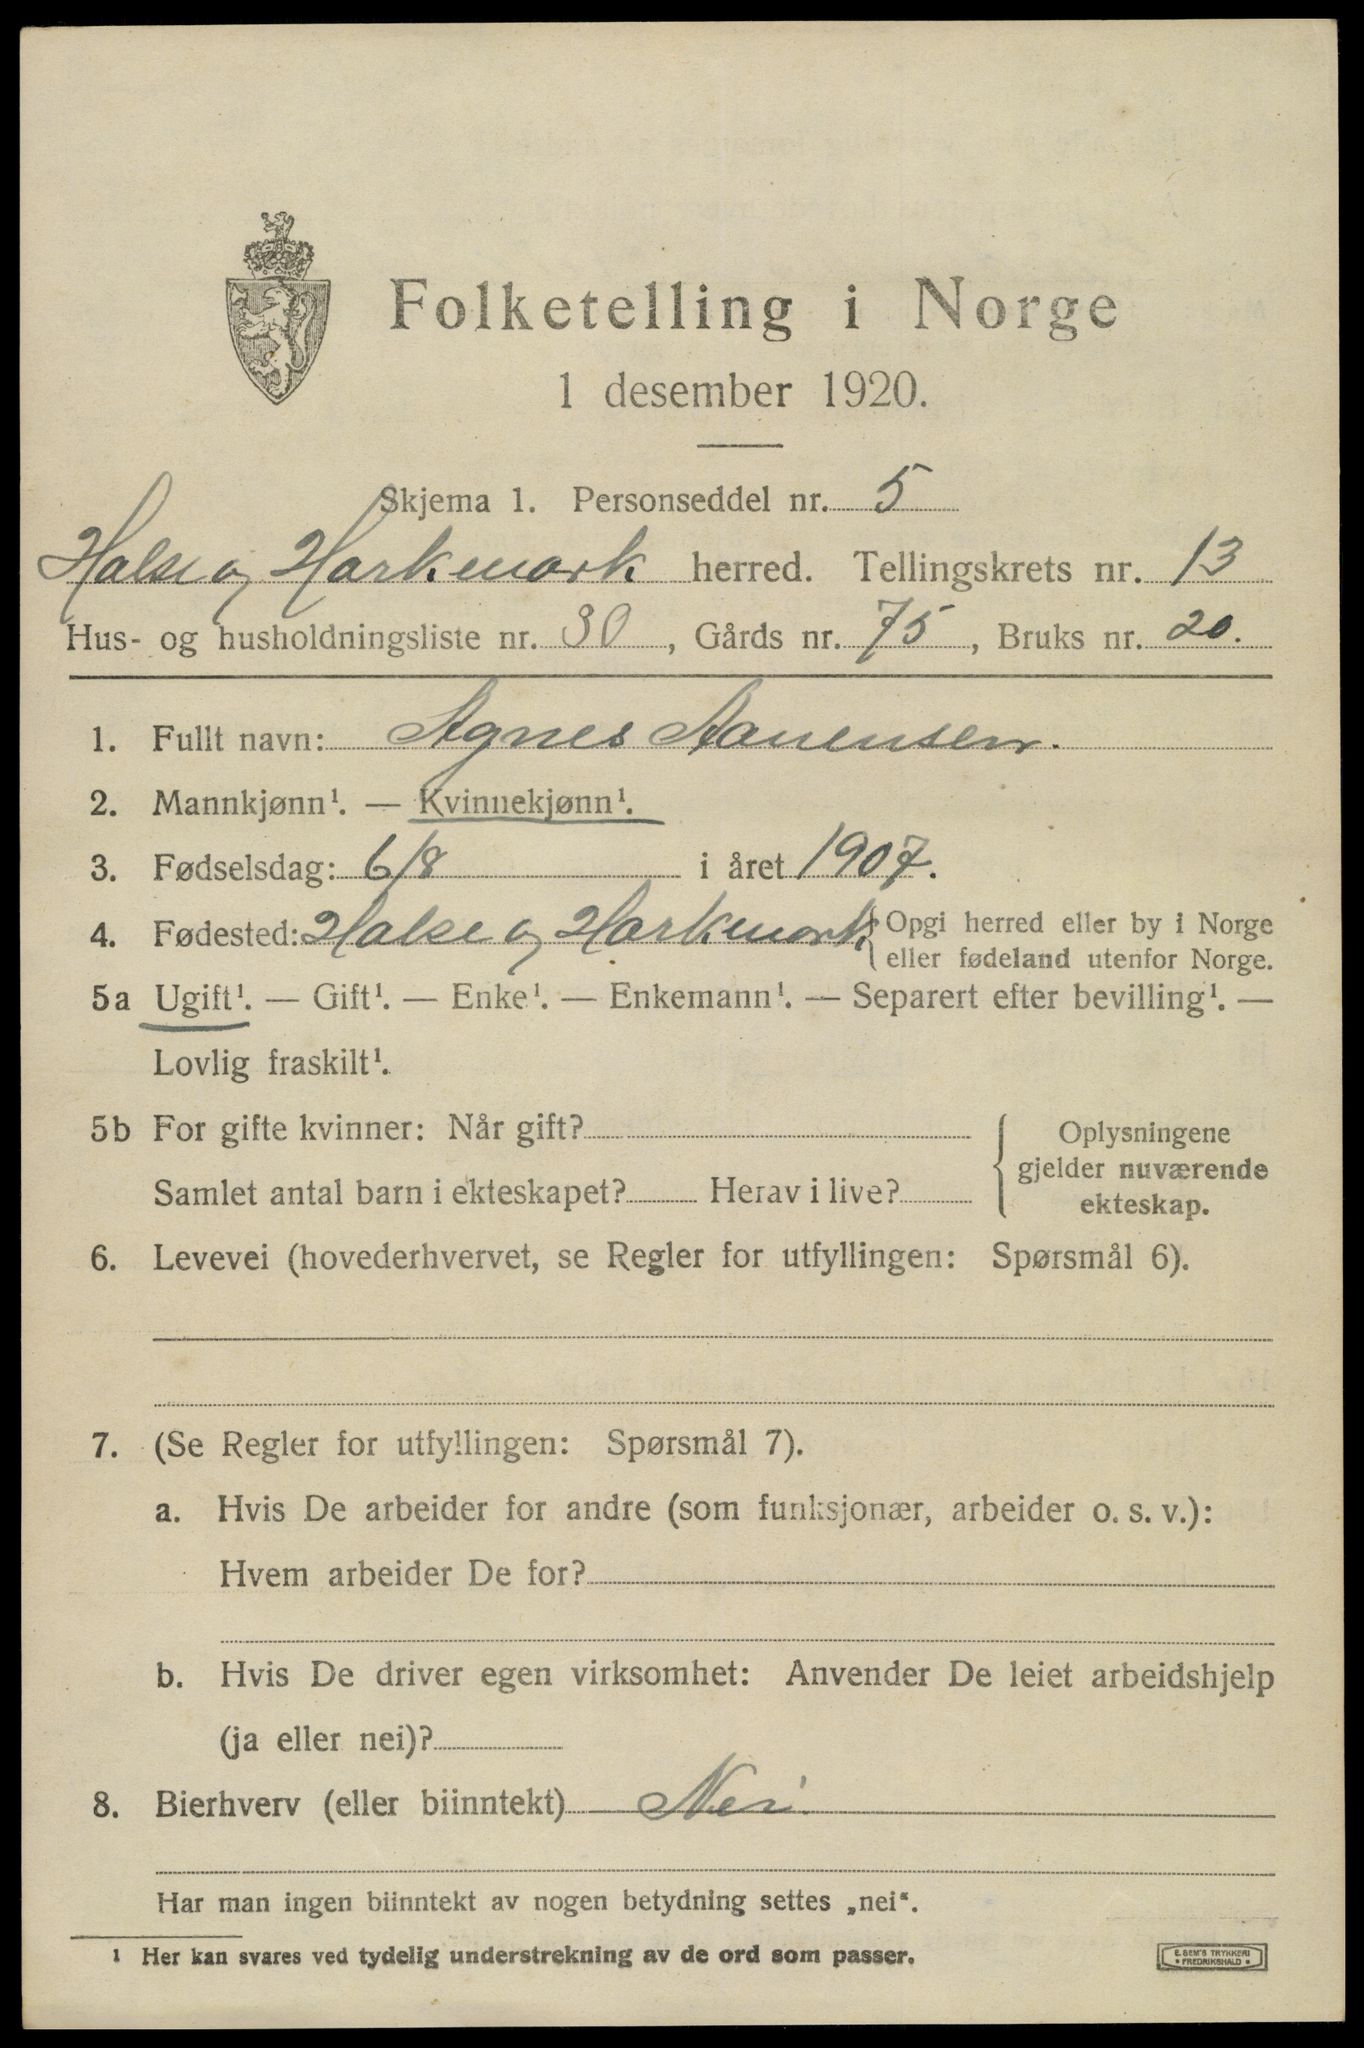 Folketelling i Norge
1 desember 1920.
Skjema 1. Personseddel nr. 5
Halse og Harkmark herred. Tellingskrets nr. 13
Hus- og husholdningsliste nr. 30, Gårds nr. 75, Bruks nr. 20.
1. Fullt navn: Agnes Aanensen.
2. Mannkjønn¹. — Kvinnekjønn¹.
3. Fødselsdag: 6/8 i året 1907.
4. Fødested: Halse og Harkmark { Opgi herred eller by i Norge
eller fødeland utenfor Norge.
5a Ugift¹. — Gift¹. — Enke¹. — Enkemann¹. — Separert efter bevilling¹. —
Lovlig fraskilt¹.
5b For gifte kvinner: Når gift?
Samlet antal barn i ekteskapet? Herav i live?
{ Oplysningene
gjelder nuværende
ekteskap.
6. Levevei (hovederhvervet, se Regler for utfyllingen: Spørsmål 6).
7. (Se Regler for utfyllingen: Spørsmål 7).
a. Hvis De arbeider for andre (som funksjonær, arbeider o. s. v.):
Hvem arbeider De for?
b. Hvis De driver egen virksomhet: Anvender De leiet arbeidshjelp
(ja eller nei)?
8. Bierhverv (eller biinntekt) Nei.
Har man ingen biinntekt av nogen betydning settes „nei“.
¹ Her kan svares ved tydelig understrekning av de ord som passer.
E. SEM'S TRYKKERI
• FREDRIKSHALD •